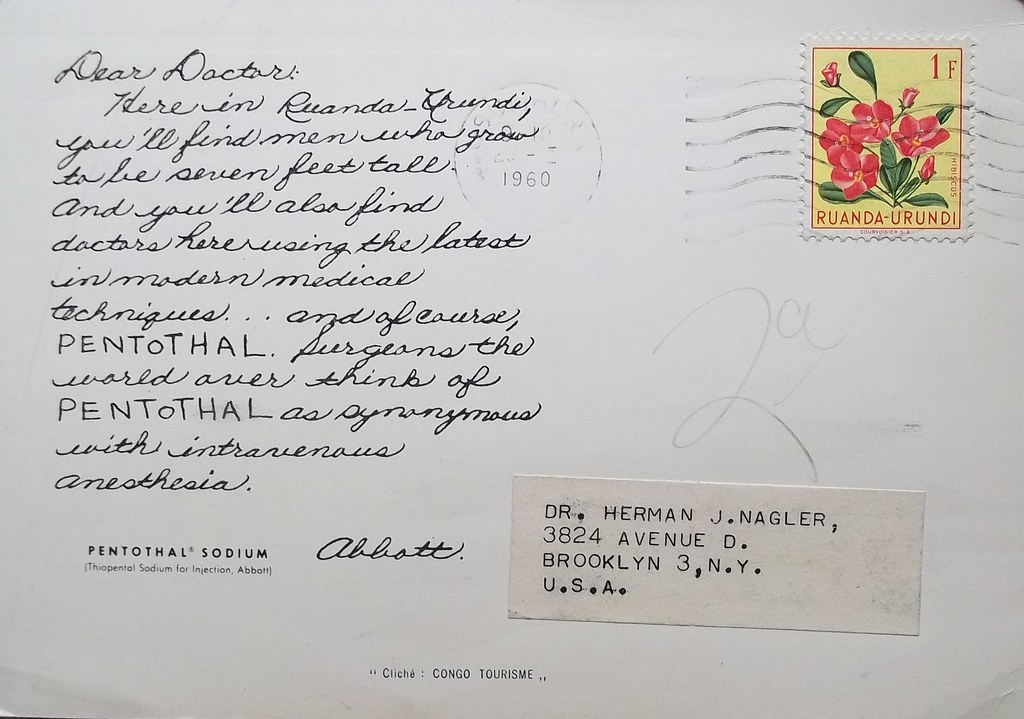 Dear Doctor:
Here in Ruanda-Urundi,
you'll find men who grow
to be seven feet tall.
And you'll also find
doctors here using the latest
in modern medical
techniques... and of course,
PENTOTHAL. Surgeons the
world over think of
PENTOTHAL as synonymous
with intravenous
anesthesia.
PENTOTHAL® SODIUM
(Thiopental Sodium for Injection, Abbott)
Abbott.
1960
1 F
HIBISCUS
RUANDA-URUNDI
COURVOISIER S.A.
DR. HERMAN J.NAGLER,
3824 AVENUE D.
BROOKLYN 3,N.Y.
U.S.A.
" Cliché : CONGO TOURISME "